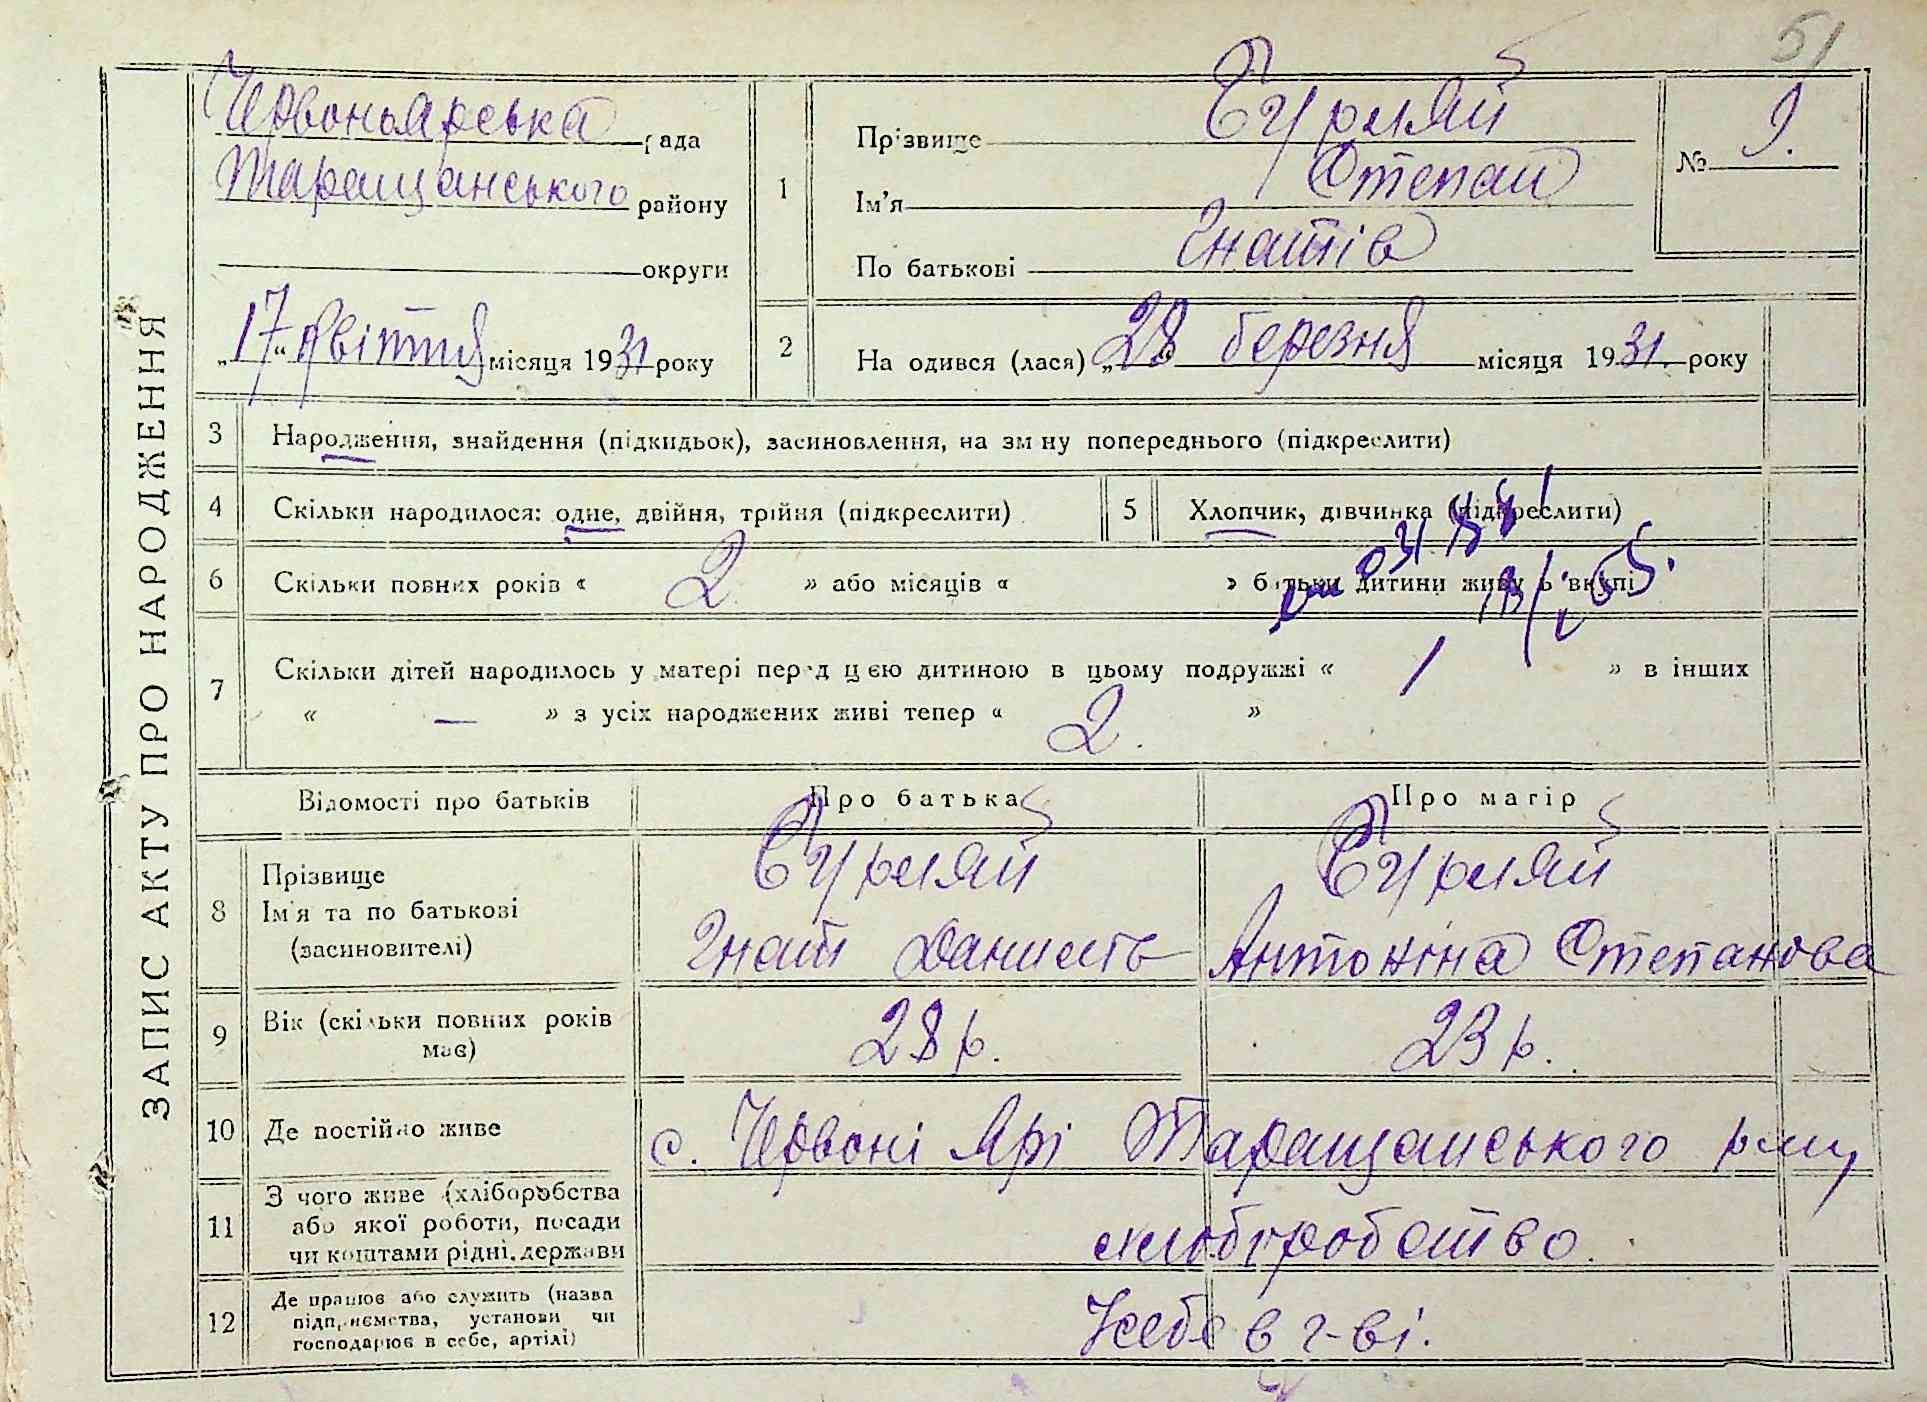 51
ЗАПИС АКТУ ПРО НАРОДЖЕННЯ
Червоноярська рада
Таращанського району
округи
„17“ Квіття місяця 1931 року
1
Прізвище Бурляй
Ім'я Степан
По батькові Гнатів
№ 9.
2
На одився (лася) „28“ березня місяця 1931. року
3 Народження, знайдення (підкидьок), засиновлення, на зміну попереднього (підкреслити)
4 Скільки народилося: одне, двійня, трійня (підкреслити)
5 Хлопчик, дівчинка (підкреслити)
6 Скільки повних років « 2 » або місяців « » батьки дитини живуть вкупі
7 Скільки дітей народилось у матері перед цією дитиною в цьому подружжі « 1 » в інших
« — » з усіх народжених живі тепер « 2. »
Відомості про батьків Про батька Про матір
8 Прізвище
Ім'я та по батькові
(засиновителі)
Бурляй
Гнат Данилів
Бурляй
Антоніна Степанова
9 Вік (скільки повних років
має)
28 р. 23 р.
10 Де постійно живе с. Червоні Ярі Таращанського р-ну
11 З чого живе (хліборобства
або якої роботи, посади
чи коштами рідні, держави
хліборобство
12 Де працює або служить (назва
підприємства, установи чи
господарює в себе, артілі)
У себе в г-ві.